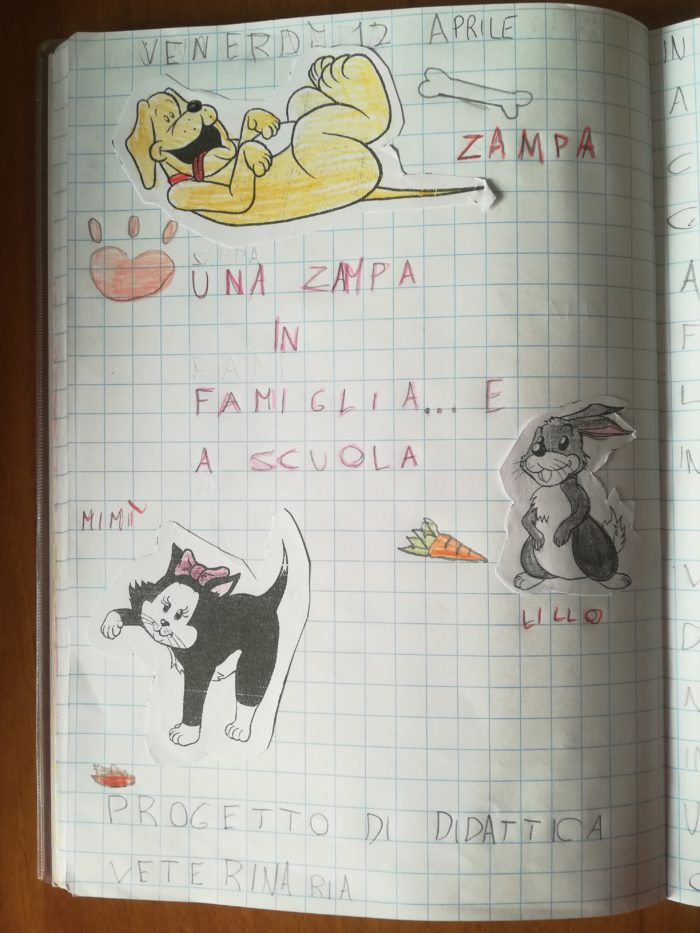 VENERDÌ 12 APRILE
ZAMPA
UNA ZAMPA
IN
FAMIGLIA... E
A SCUOLA
MIMÌ
LILLO
PROGETTO DI DIDATTICA
VETERINARIA
IN
A
C
G
A
F
L
IN
V
D
N
IN
V
C